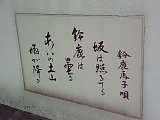 鈴鹿馬子唄
坂は照る照る
鈴鹿は曇る
あいの土山
雨が降る